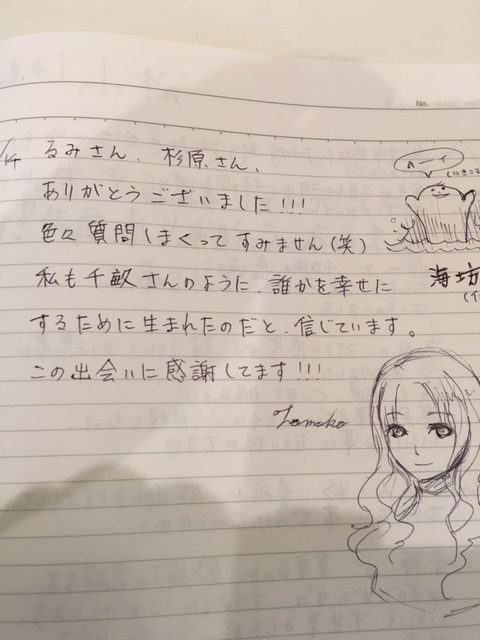 No.
/14 るみさん、杉原さん、
ありがとうございました!!!
色々質問しまくってすみません(笑)
私も千畝さんのように、誰かを幸せに
するために生まれたのだと、信じています。
この出会いに感謝してます!!!
Tomoko
へーイ
海坊